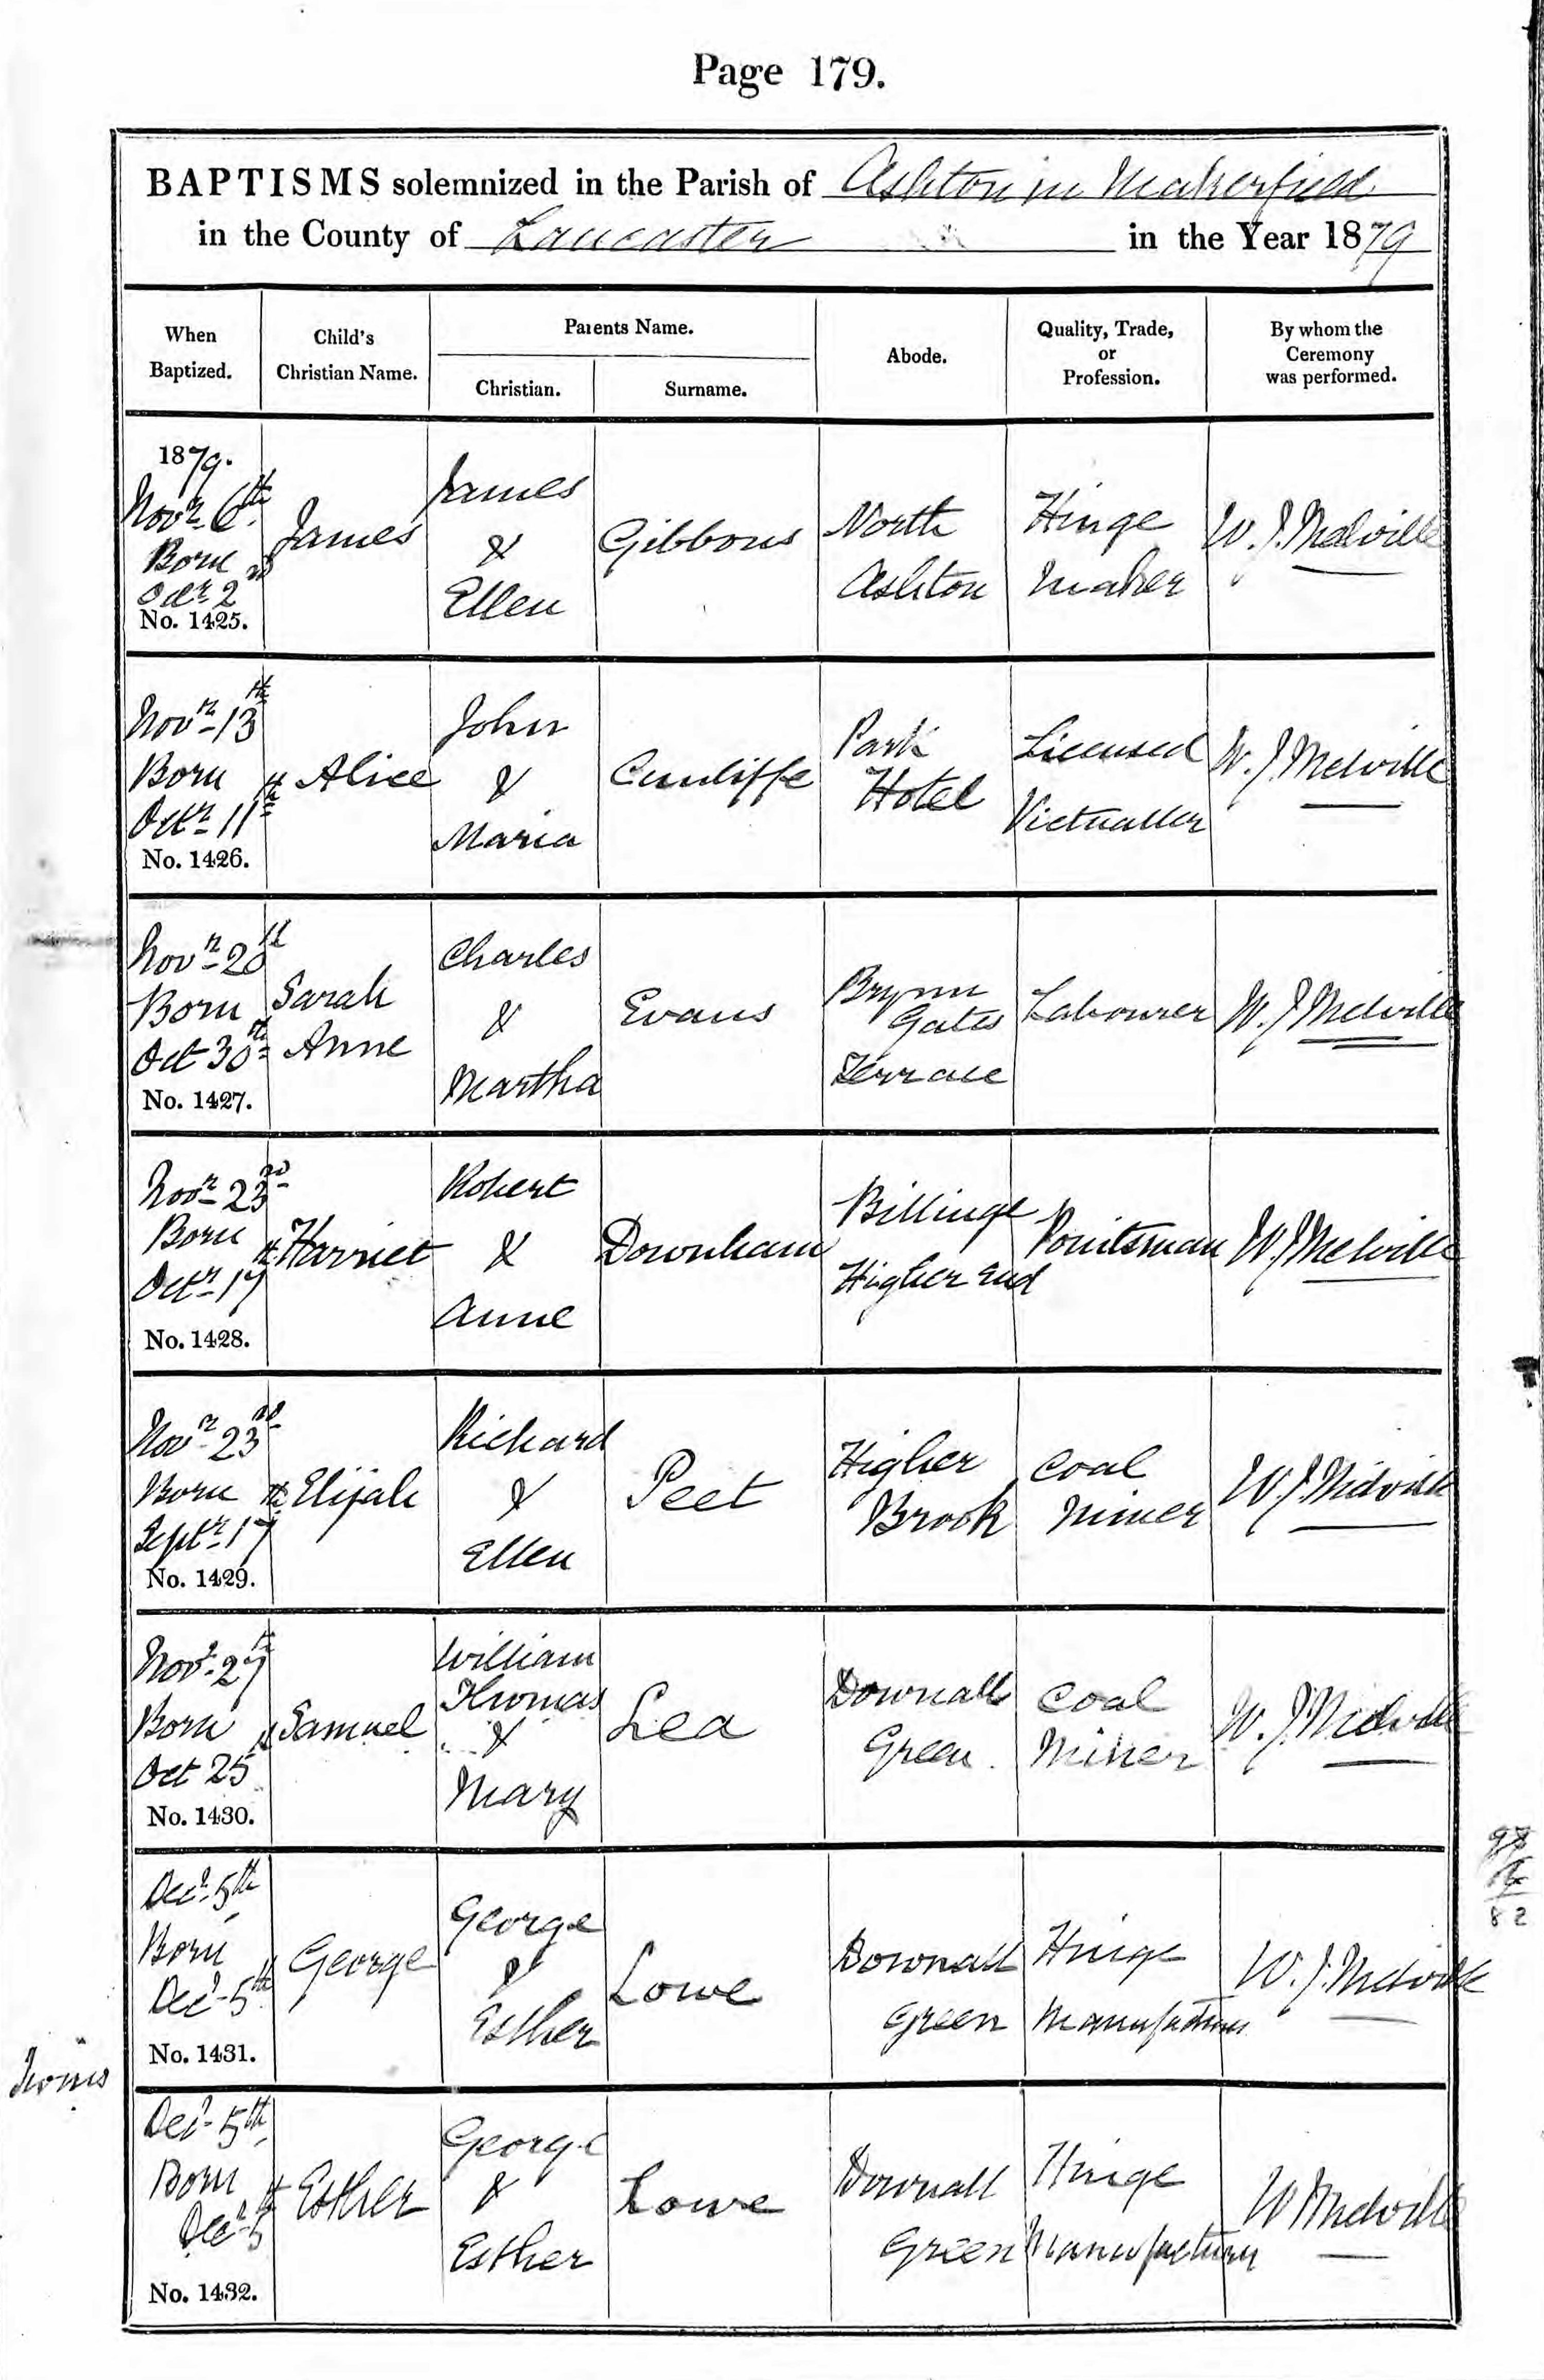 Page 179.
BAPTISMS solemnized in the Parish of Ashton in Makerfield
in the County of Lancaster in the Year 1879
When Baptized.
Child's Christian Name.
Parents Name.
Christian.
Surname.
Abode.
Quality, Trade, or Profession.
By whom the Ceremony was performed.
1879.
Novr 6th
Born
Octr 2nd
No. 1425.
James
James
&
Ellen
Gibbons
North
Ashton
Hinge
Maker
W. J. Melville
Novr 13th
Born
Octr 11th
No. 1426.
Alice
John
&
Maria
Cunliffe
Park
Hotel
Licensed
Victualler
W. J. Melville
Novr 20th
Born
Oct 30th
No. 1427.
Sarah
Anne
Charles
&
Martha
Evans
Brynn
Gates
Terrace
Labourer
W. J. Melville
Novr 23rd
Born
Octr 17th
No. 1428.
Harriet
Robert
&
Anne
Downham
Billinge
Higher End
Pointsman
W. J. Melville
Novr 23rd
Born
Septr 17th
No. 1429.
Elijah
Richard
&
Ellen
Peet
Higher
Brook
Coal
Miner
W. J. Melville
Novr 27th
Born
Oct 25th
No. 1430.
Samuel
William
Thomas
&
Mary
Lea
Downall
Green
Coal
Miner
W. J. Melville
Decr 5th
Born
Decr 5th
No. 1431.
George
George
&
Esther
Lowe
Downall
Green
Hinge
Manufacturer
W. J. Melville
82
Twins
Decr 5th
Born
Decr 5th
No. 1432.
Esther
George
&
Esther
Lowe
Downall
Green
Hinge
Manufacturer
W J Melville